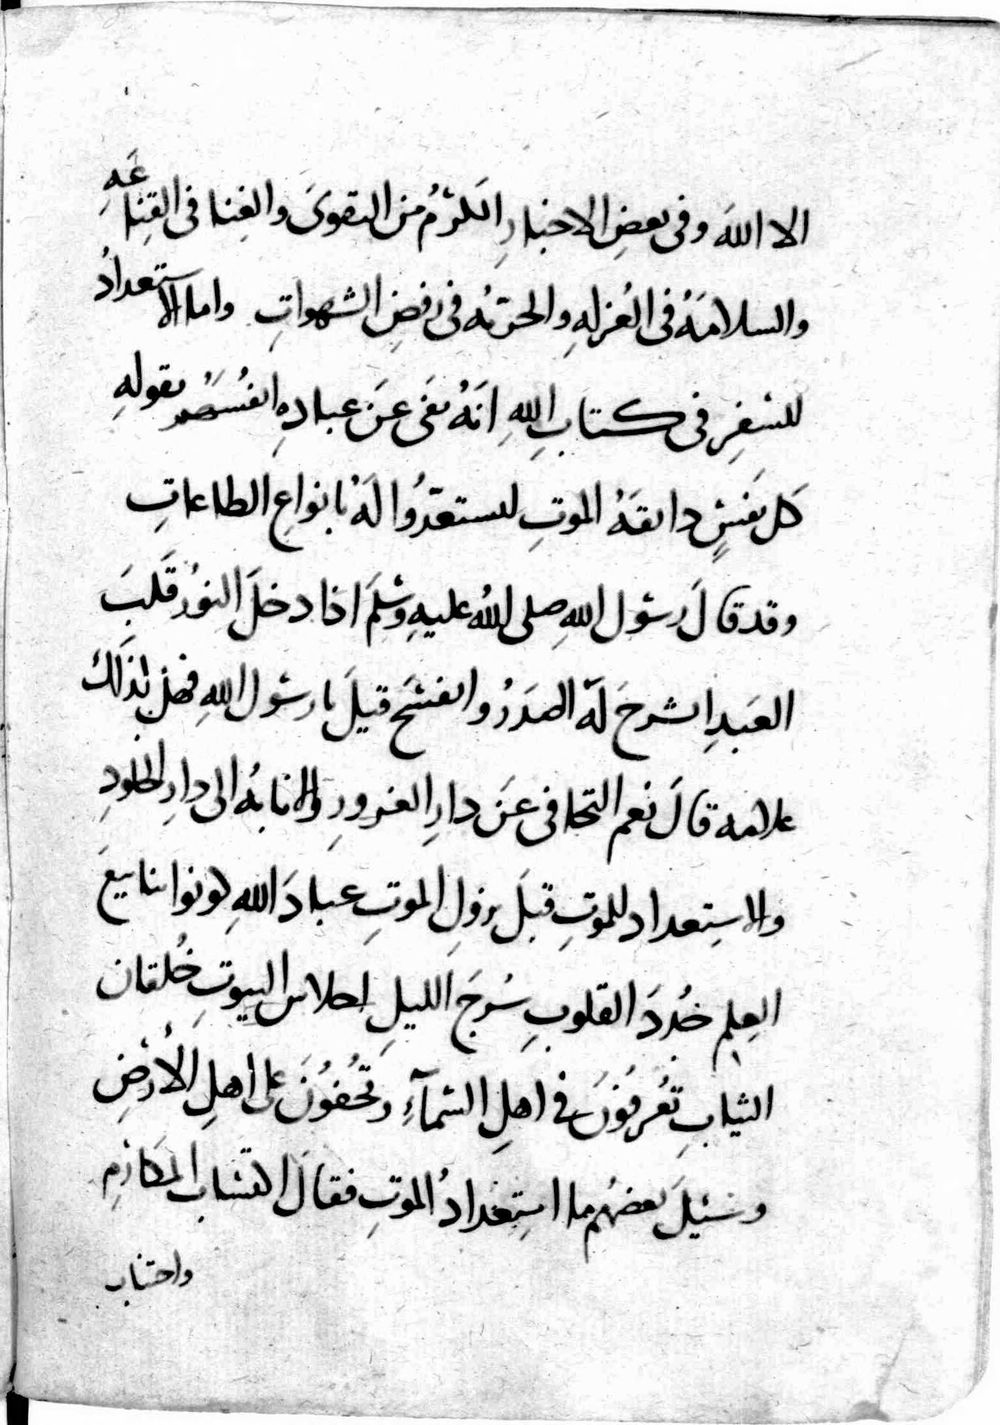 الا الله وفى بعض الاخبار الكرم من التقوى والغنا فى القناعه
والسلامة فى العزله والحرية فى رفض الشهوات واما الاستعداد
للسفر فى كتاب الله انه نعى عن عباده انفسهم بقوله
كل نفس ذايقة الموت ليستعدوا له بانواع الطاعات
وقد قال رسول الله صلى الله عليه وسلم اذا دخل النور قلب
العبد انشرح له الصدر وانفسح قيل يا رسول الله فهل لذلك
علامه قال نعم التجافى عن دار الغرور والانابة الى دار الخلود
والاستعداد للموت قبل نزول الموت عباد الله كونوا ينابيع
العلم جدد القلوب سرج الليل احلاس البيوت خلقان
الثياب تعرفون فى اهل السماء وتخفون على اهل الارض
وسئل بعضهم ما استعداد الموت فقال اكتساب المكارم
واجتناب